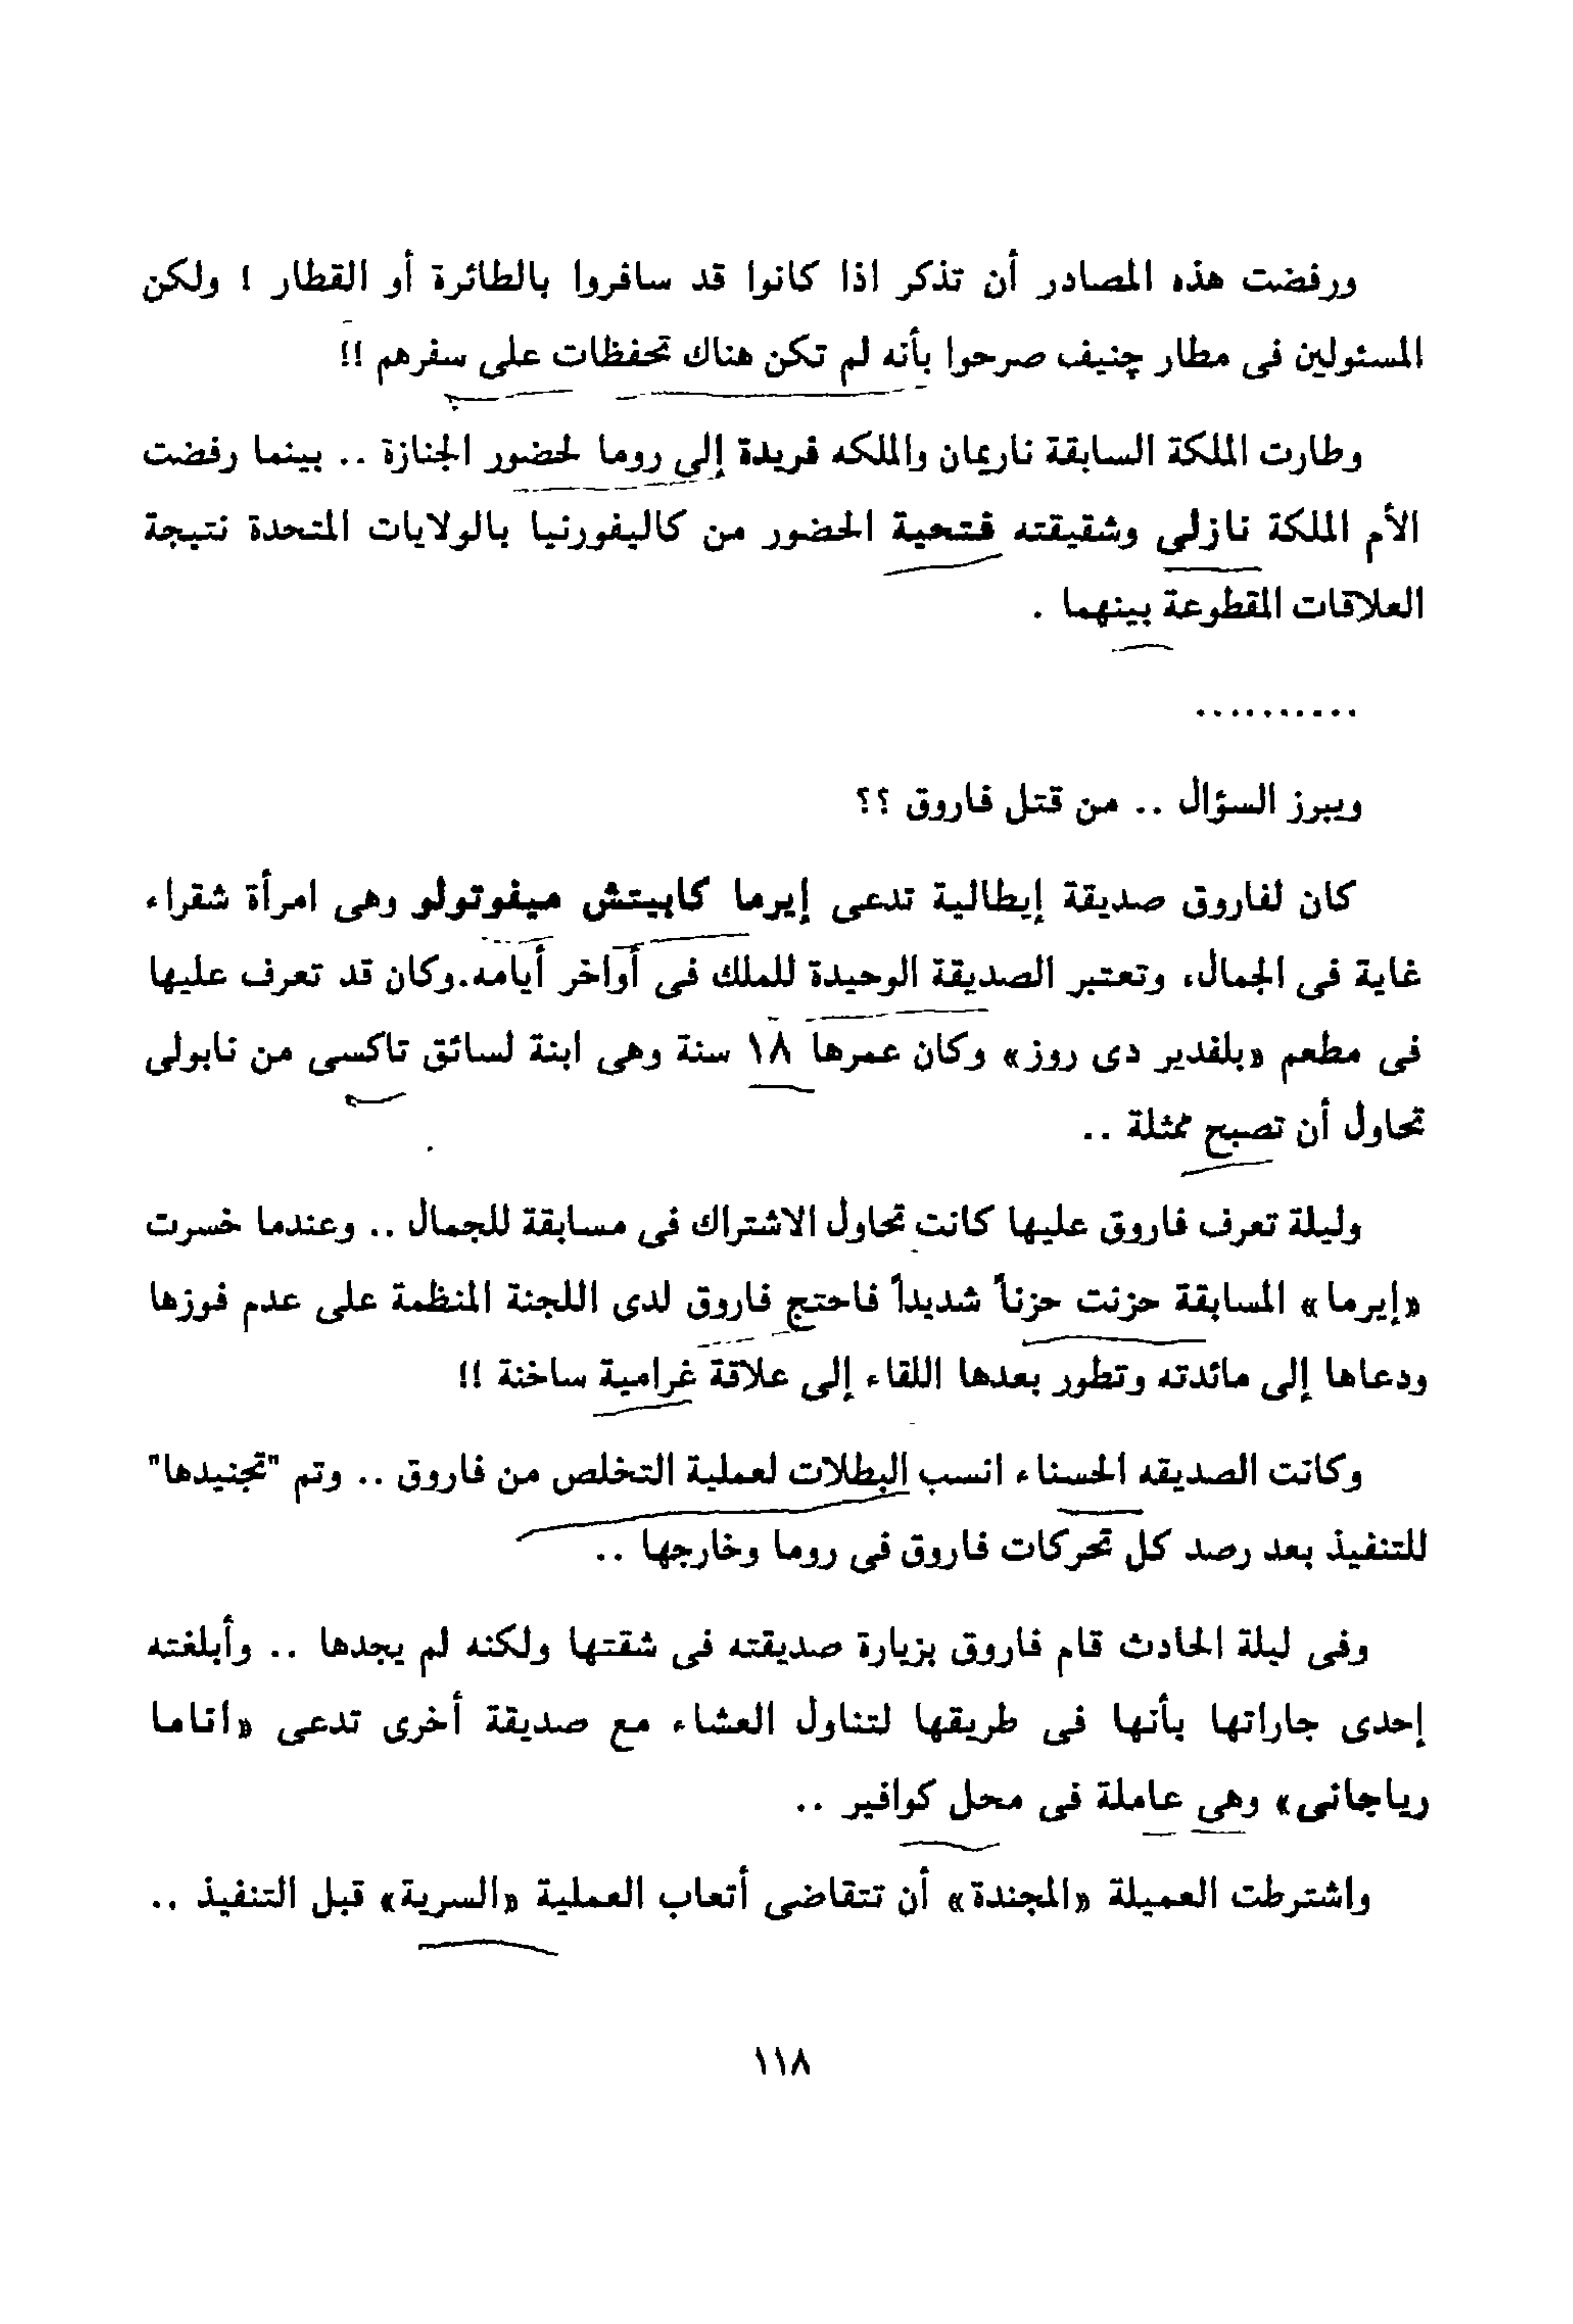 ورفضت هذه المصادر أن تذكر اذا كانوا قد سافروا بالطائرة أو القطار ! ولكن
المسئولين فى مطار چنيف صرحوا بأنه لم تكن هناك تحفظات على سفرهم !!
وطارت الملكة السابقة ناريمان والملكه فريدة إلى روما لحضور الجنازة .. بينما رفضت
الأم الملكة نازلى وشقيقته فتحية الحضور من كاليفورنيا بالولايات المتحدة نتيجة
العلاقات المقطوعة بينهما .
..........
ويبرز السؤال .. من قتل فاروق ؟؟
كان لفاروق صديقة إيطالية تدعى إيرما كابيتش ميفوتولو وهى امرأة شقراء
غاية فى الجمال، وتعتبر الصديقة الوحيدة للملك فى أواخر أيامه.وكان قد تعرف عليها
فى مطعم «بلفدير دى روز» وكان عمرها ١٨ سنة وهى ابنة لسائق تاكسى من نابولى
تحاول أن تصبح ممثلة ..
وليلة تعرف فاروق عليها كانت تحاول الاشتراك فى مسابقة للجمال .. وعندما خسرت
«إيرما» المسابقة حزنت حزناً شديداً فاحتج فاروق لدى اللجنة المنظمة على عدم فوزها
ودعاها إلى مائدته وتطور بعدها اللقاء إلى علاقة غرامية ساخنة !!
وكانت الصديقه الحسناء انسب البطلات لعملية التخلص من فاروق .. وتم "تجنيدها"
للتنفيذ بعد رصد كل تحركات فاروق فى روما وخارجها ..
وفى ليلة الحادث قام فاروق بزيارة صديقته فى شقتها ولكنه لم يجدها .. وأبلغته
إحدى جاراتها بأنها فى طريقها لتناول العشاء مع صديقة أخرى تدعى «اناما
رياجانى» وهى عاملة فى محل كوافير ..
واشترطت العميلة «المجندة» أن تتقاضى أتعاب العملية «السرية» قبل التنفيذ ..
١١٨